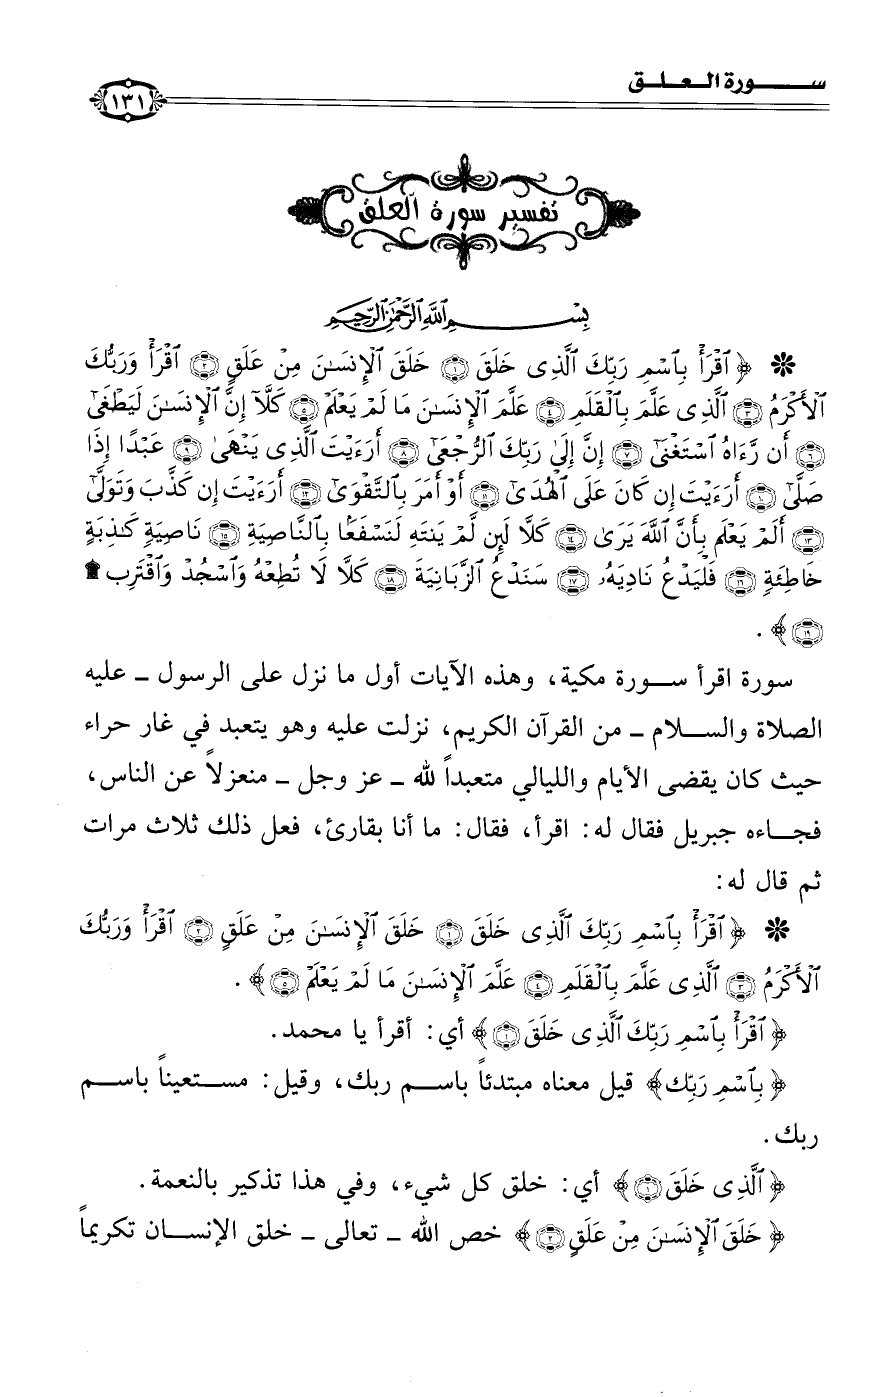 سورة العلق
١٣١
تفسير سورة العلق
بِسْمِ اللَّهِ الرَّحْمَٰنِ الرَّحِيمِ
❊ ﴿ ٱقْرَأْ بِٱسْمِ رَبِّكَ ٱلَّذِى خَلَقَ ۝١ خَلَقَ ٱلْإِنسَٰنَ مِنْ عَلَقٍ ۝٢ ٱقْرَأْ وَرَبُّكَ
ٱلْأَكْرَمُ ۝٣ ٱلَّذِى عَلَّمَ بِٱلْقَلَمِ ۝٤ عَلَّمَ ٱلْإِنسَٰنَ مَا لَمْ يَعْلَمْ ۝٥ كَلَّآ إِنَّ ٱلْإِنسَٰنَ لَيَطْغَىٰٓ
۝٦ أَن رَّءَاهُ ٱسْتَغْنَىٰٓ ۝٧ إِنَّ إِلَىٰ رَبِّكَ ٱلرُّجْعَىٰٓ ۝٨ أَرَءَيْتَ ٱلَّذِى يَنْهَىٰ ۝٩ عَبْدًا إِذَا
صَلَّىٰٓ ۝١٠ أَرَءَيْتَ إِن كَانَ عَلَى ٱلْهُدَىٰٓ ۝١١ أَوْ أَمَرَ بِٱلتَّقْوَىٰٓ ۝١٢ أَرَءَيْتَ إِن كَذَّبَ وَتَوَلَّىٰٓ
۝١٣ أَلَمْ يَعْلَم بِأَنَّ ٱللَّهَ يَرَىٰ ۝١٤ كَلَّا لَئِن لَّمْ يَنتَهِ لَنَسْفَعًۢا بِٱلنَّاصِيَةِ ۝١٥ نَاصِيَةٍ كَٰذِبَةٍ
خَاطِئَةٍ ۝١٦ فَلْيَدْعُ نَادِيَهُۥ ۝١٧ سَنَدْعُ ٱلزَّبَانِيَةَ ۝١٨ كَلَّا لَا تُطِعْهُ وَٱسْجُدْ وَٱقْتَرِب ۩
۝١٩ ﴾ .
سورة اقرأ سورة مكية، وهذه الآيات أول ما نزل على الرسول ـ عليه
الصلاة والسلام ـ من القرآن الكريم، نزلت عليه وهو يتعبد في غار حراء
حيث كان يقضى الأيام والليالي متعبداً لله ـ عز وجل ـ منعزلاً عن الناس،
فجاءه جبريل فقال له: اقرأ، فقال: ما أنا بقارئ، فعل ذلك ثلاث مرات
ثم قال له:
❊ ﴿ ٱقْرَأْ بِٱسْمِ رَبِّكَ ٱلَّذِى خَلَقَ ۝١ خَلَقَ ٱلْإِنسَٰنَ مِنْ عَلَقٍ ۝٢ ٱقْرَأْ وَرَبُّكَ
ٱلْأَكْرَمُ ۝٣ ٱلَّذِى عَلَّمَ بِٱلْقَلَمِ ۝٤ عَلَّمَ ٱلْإِنسَٰنَ مَا لَمْ يَعْلَمْ ۝٥ ﴾ .
﴿ ٱقْرَأْ بِٱسْمِ رَبِّكَ ٱلَّذِى خَلَقَ ۝١ ﴾ أي: أقرأ يا محمد.
﴿ بِٱسْمِ رَبِّكَ ﴾ قيل معناه مبتدئاً باسم ربك، وقيل: مستعيناً باسم
ربك.
﴿ ٱلَّذِى خَلَقَ ۝١ ﴾ أي: خلق كل شيء، وفي هذا تذكير بالنعمة.
﴿ خَلَقَ ٱلْإِنسَٰنَ مِنْ عَلَقٍ ۝٢ ﴾ خص الله ـ تعالى ـ خلق الإنسان تكريماً